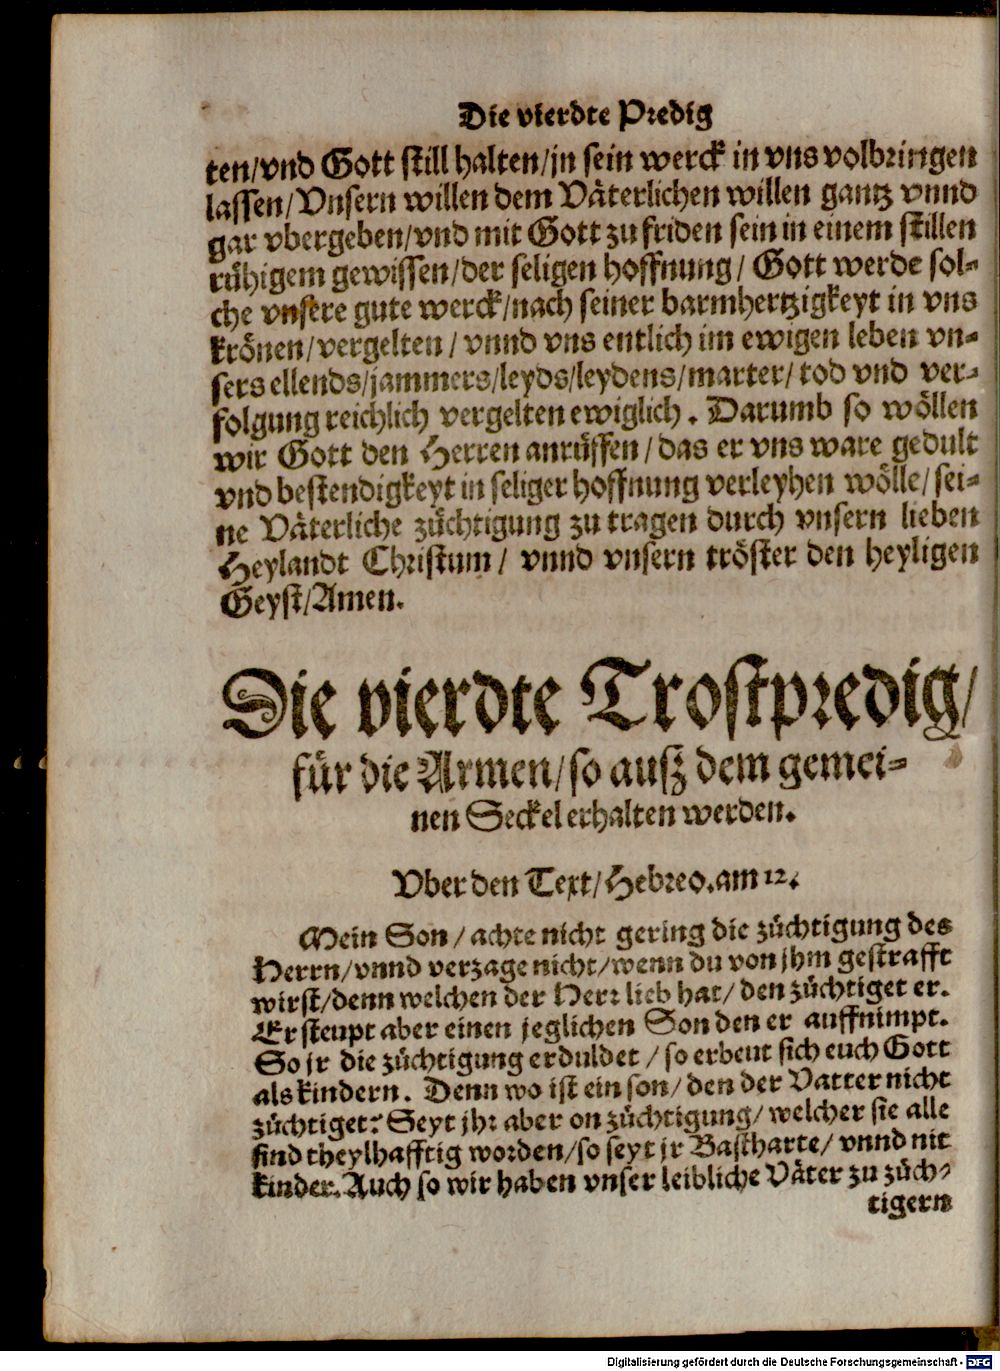 Die vierdte Predig
ten/vnd Gott still halten/jn sein werck in vns volbringen
lassen/Vnsern willen dem Väterlichen willen gantz vnnd
gar vbergeben/vnd mit Gott zu friden sein in einem stillen
rühigem gewissen/der seligen hoffnung/ Gott werde sol-
che vnsere gute werck/nach seiner barmhertzigkeyt in vns
krönen/vergelten/ vnnd vns entlich im ewigen leben vn-
sers ellends/jammers/leyds/leydens/marter/ tod vnd ver-
folgung reichlich vergelten ewiglich. Darumb so wöllen
wir Gott den Herren anrüffen/das er vns ware gedult
vnd bestendigkeyt in seliger hoffnung verleyhen wölle/sei-
ne Väterliche züchtigung zu tragen durch vnsern lieben
Heylandt Christum/ vnnd vnsern tröster den heyligen
Geyst/Amen.
Die vierdte Trostpredig/
für die Armen/so ausz dem gemei-
nen Seckel erhalten werden.
Vber den Text/Hebreo. am 12.
Mein Son/ achte nicht gering die züchtigung des
Herrn/vnnd verzage nicht/wenn du von jhm gestrafft
wirst/denn welchen der Herr lieb hat/ den züchtiget er.
Er steupt aber einen jeglichen Son den er auffnimpt.
So jr die züchtigung erduldet/so erbeut sich euch Gott
als kindern. Denn wo ist ein son/ den der Vatter nicht
züchtiget? Seyt jhr aber on züchtigung/ welcher sie alle
sind theylhafftig worden/so seyt jr Bastharte/ vnnd nit
kinder. Auch so wir haben vnser leibliche Väter zu züch-
tigern
Digitalisierung gefördert durch die Deutsche Forschungsgemeinschaft - DFG